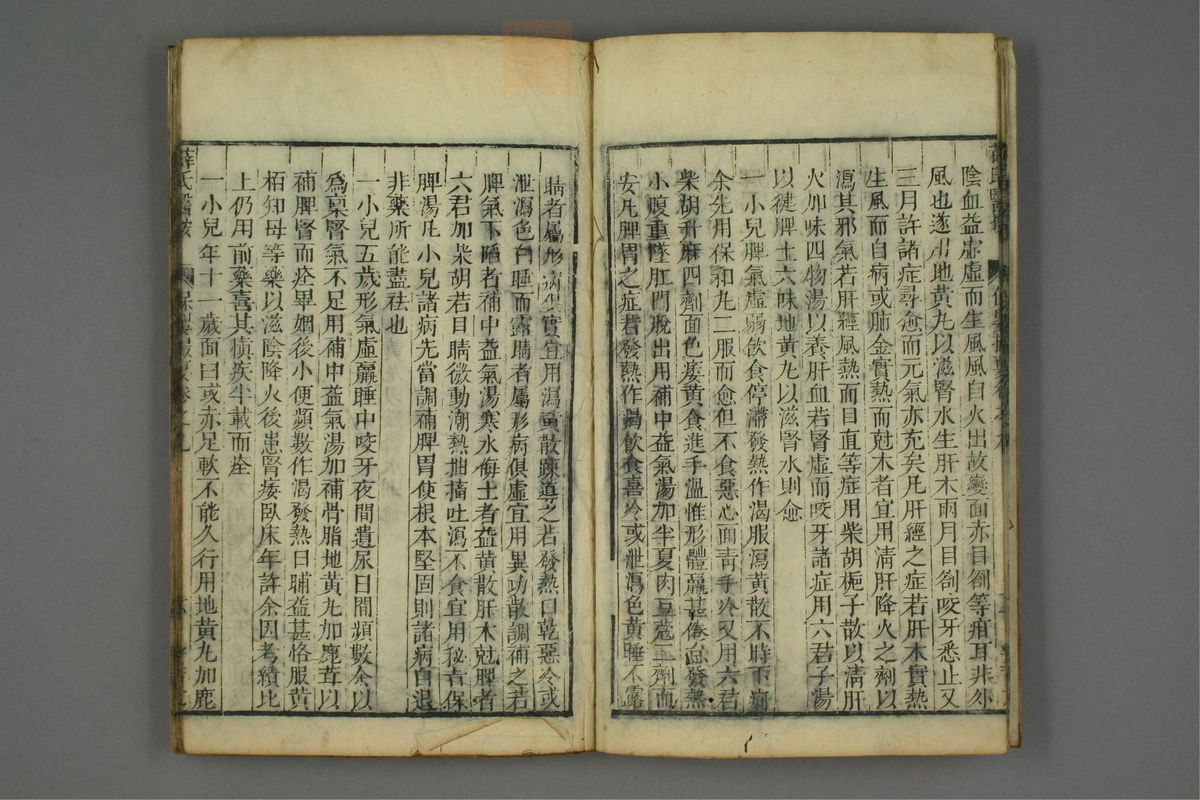 陰血益虛虛而生風風自火出故變面赤目劄等疳耳非外
風也遂用地黃丸以滋腎水生肝木兩月目劄咬牙悉止又
三月許諸症尋愈而元氣亦充矣凡肝經之症若肝木實熱
生風而自病或肺金實熱而尅木者宜用淸肝降火之劑以
瀉其邪氣若肝經風熱而目直等症用柴胡梔子散以淸肝
火加味四物湯以養肝血若腎虛而咬牙諸症用六君子湯
以徤脾土六味地黃丸以滋腎水則愈
一小兒脾氣虛弱飮食停滯發熱作渴服瀉黃散不時下痢
余先用保和丸二服而愈但不食惡心面靑手冷又用六君
柴胡升麻四劑面色痿黃食進手溫惟形體羸甚倦怠發熱
小腹重墜肛門脫出用補中益氣湯加半夏肉豆蔻二劑而
安凡脾胃之症若發熱作渴飮食喜冷或泄瀉色黃睡不露
睛者屬形病俱實宜用瀉黃散踈導之若發熱口乾惡冷或
泄瀉色白睡而露睛者屬形病俱虛宜用異功散調補之若
脾氣下陷者補中益氣湯寒水侮土者益黃散肝木尅脾者
六君加柴胡若目睛微動潮熱抽搐吐瀉不食宜用秘旨保
脾湯凡小兒諸病先當調補脾胃使根本堅固則諸病自退
非藥所能盡祛也
一小兒五歲形氣虛羸睡中咬牙夜間遺尿日間頻數余以
爲稟腎氣不足用補中益氣湯加補骨脂地黃丸加鹿茸以
補脾腎而痊畢姻後小便頻數作渴發熱日晡益甚恪服黃
栢知母等藥以滋陰降火後患腎痿臥床年許余因考績北
上仍用前藥喜其愼疾半載而痊
一小兒年十一歲面白或赤足軟不能久行用地黃丸加鹿
薛氏醫按
保嬰撮要卷之九